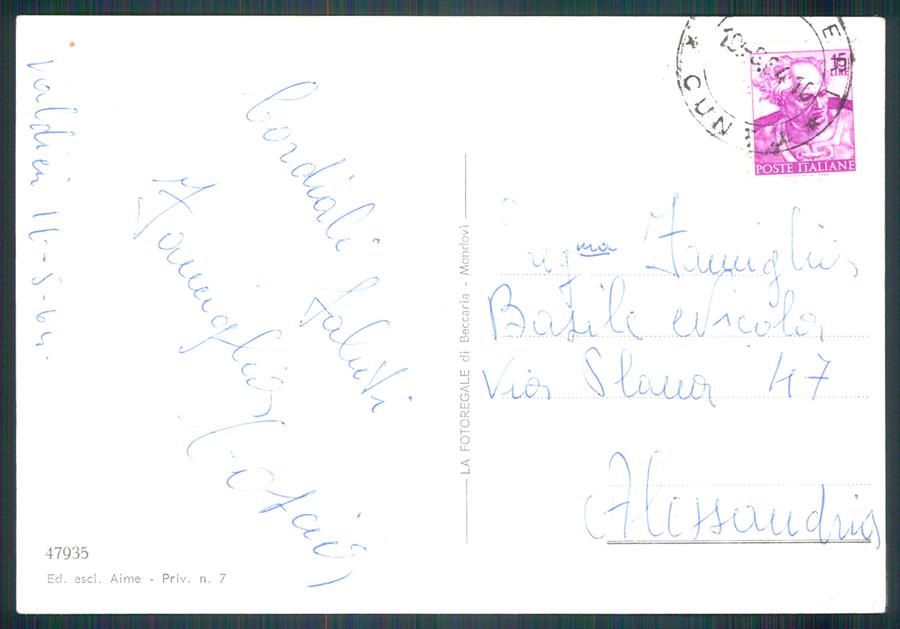 Valdieri 16-8-64.
Cordiali Saluti
Famiglia
47935
Ed. escl. Aime - Priv. n. 7
LA FOTOREGALE di Beccaria - Mondovì
15
LIRE
POSTE ITALIANE
Famiglia
Basile Nicola
Via Plana 47
Alessandria